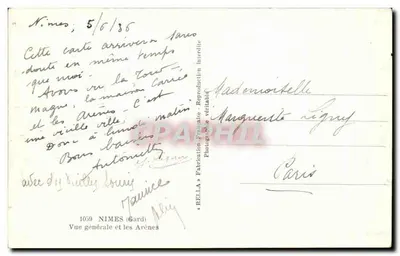 Nimes, 5/6/36
Cette carte arrivera sans
doute en même temps
que moi.
Avons vu la Tour
magne, la maison Carrée
et les Arènes. C'est
une vieille ville.
Donc à lundi matin
Bons baisers
Antoinette
avec les Louis
Maurice
1059 NIMES (Gard)
Vue générale et les Arènes
"RELLA" Fabrication Française - Reproduction Interdite
Photographie véritable
Mademoiselle
Marguerite Ligny
Paris
PAPHRTI